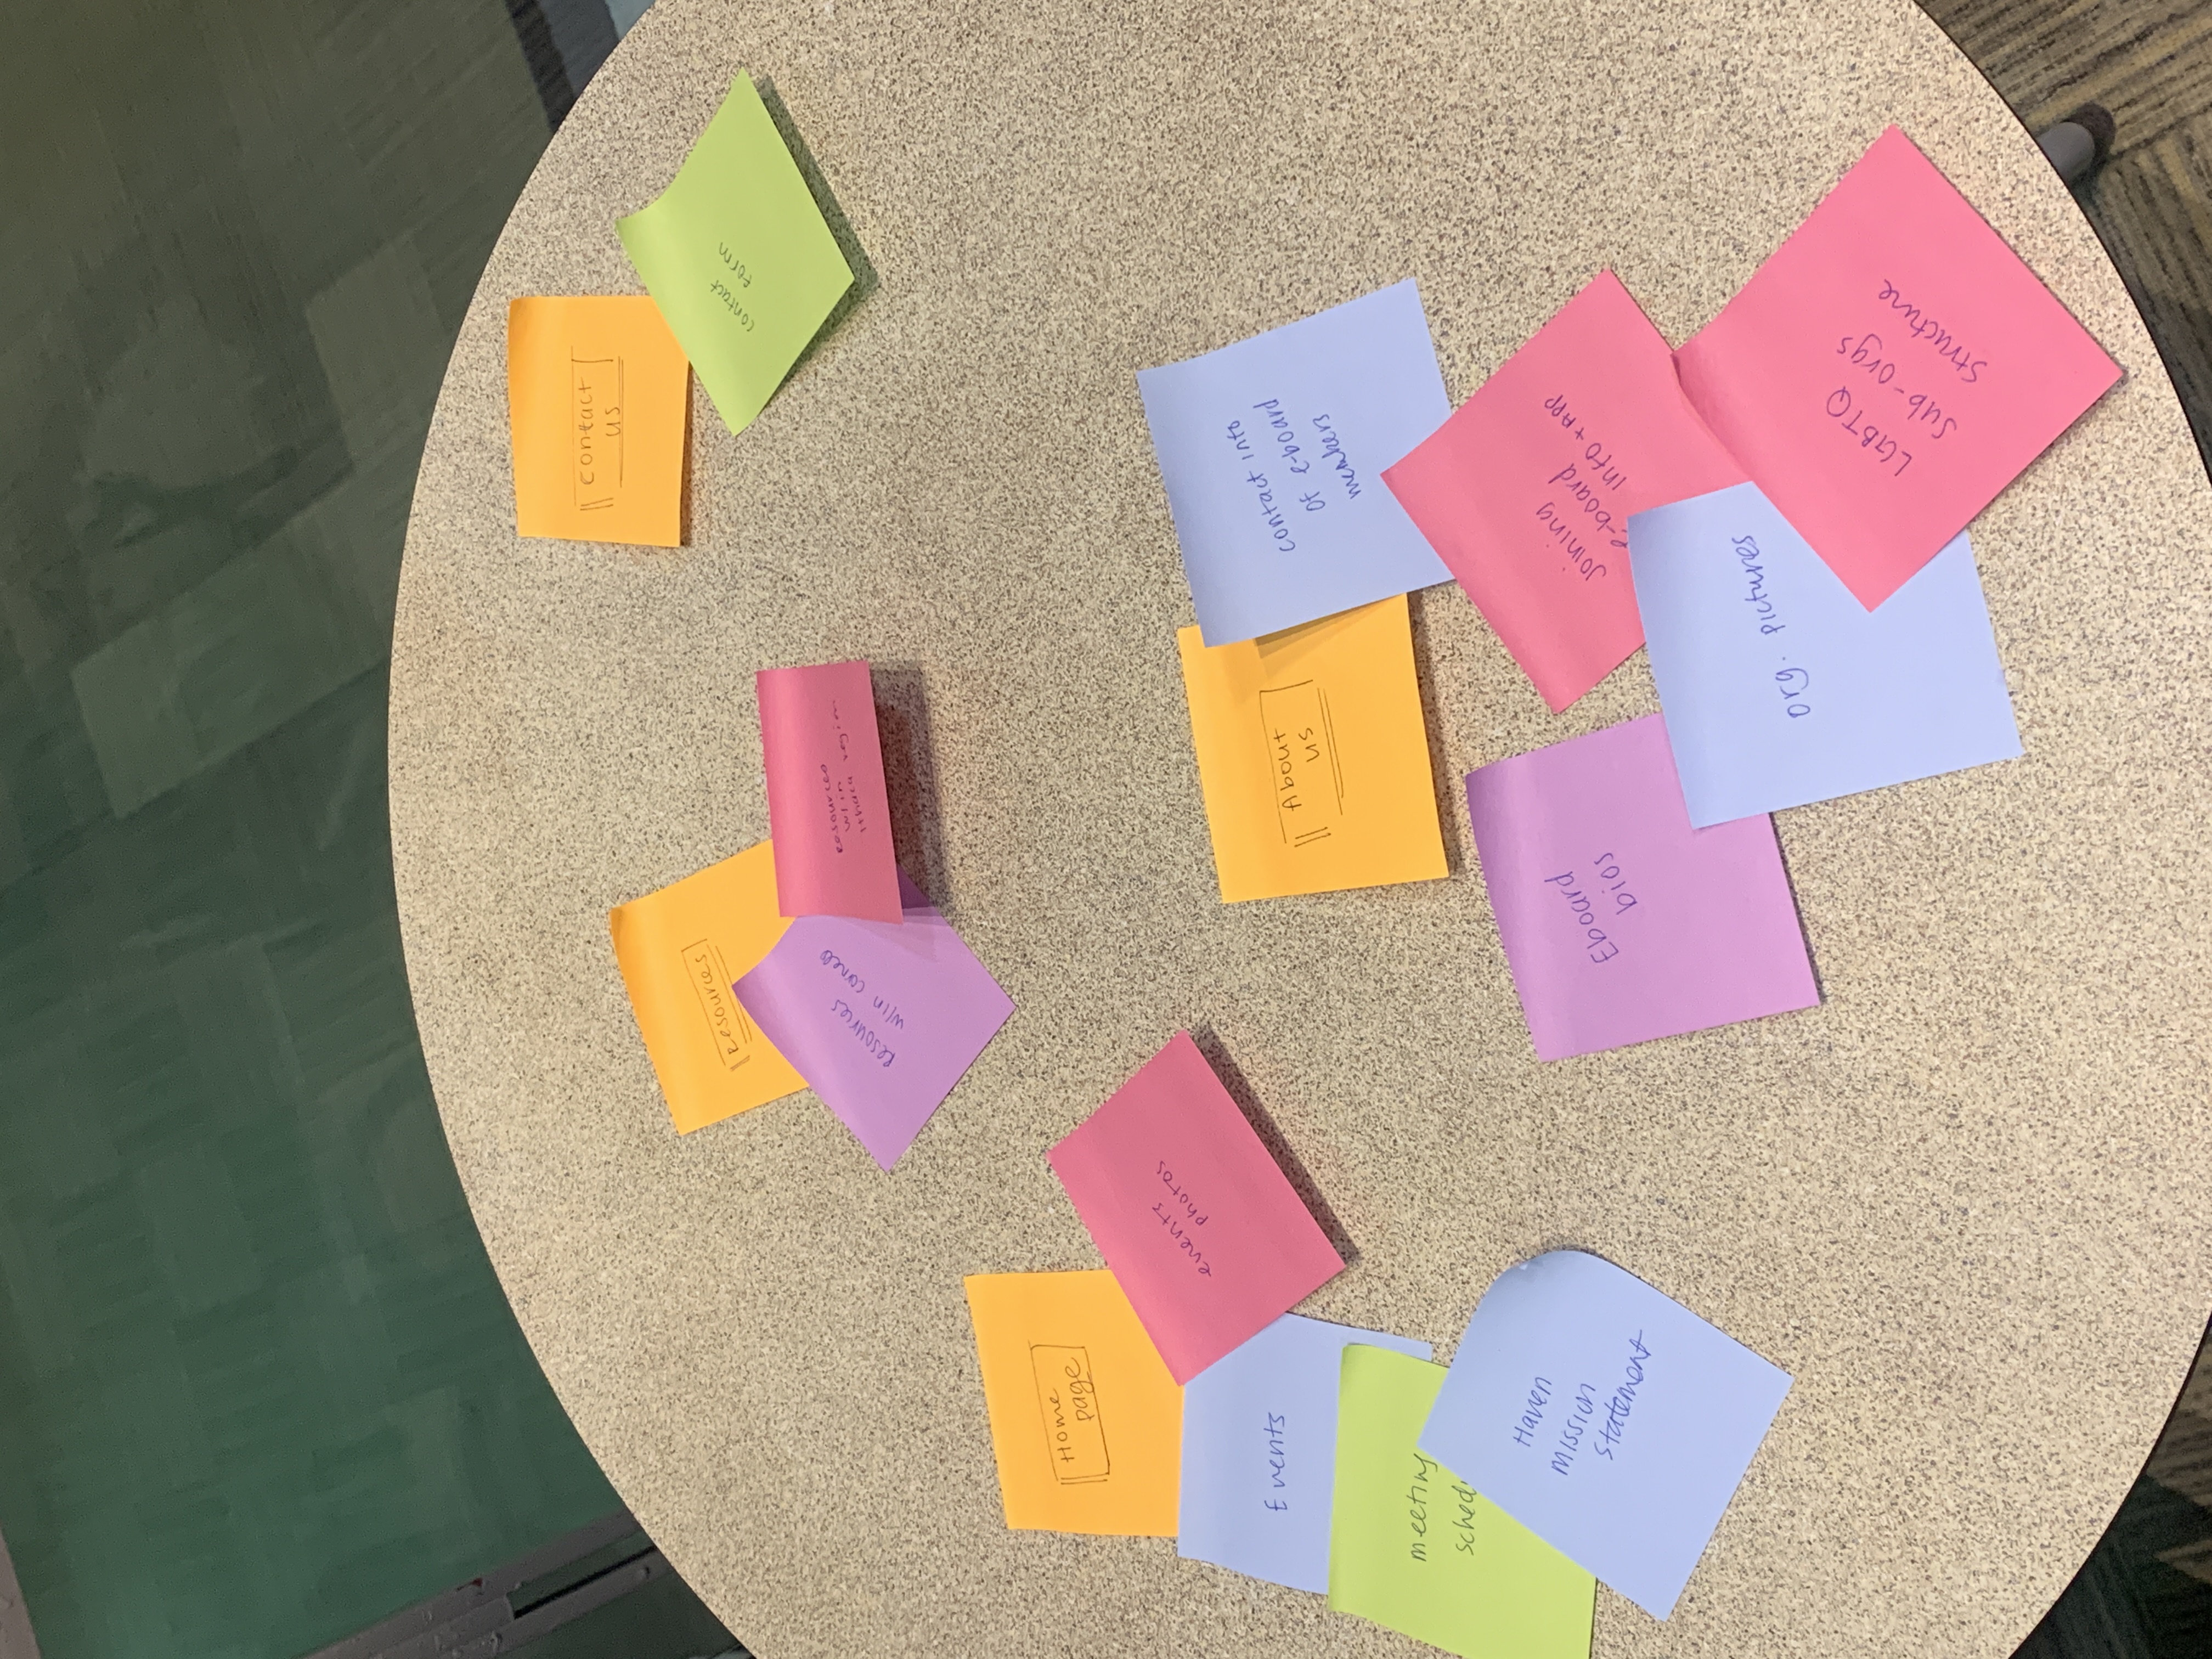 contact
us
contact
form
Resources
Resources
w/in cornell
resources
w/in
Ithaca region
Home
page
events
photos
Events
meeting
sched
Haven
mission
statement
About
us
contact info
of e-board
members
Eboard
bios
joining
e-board
info + APP
org. pictures
LGBTQ
sub-orgs
structure